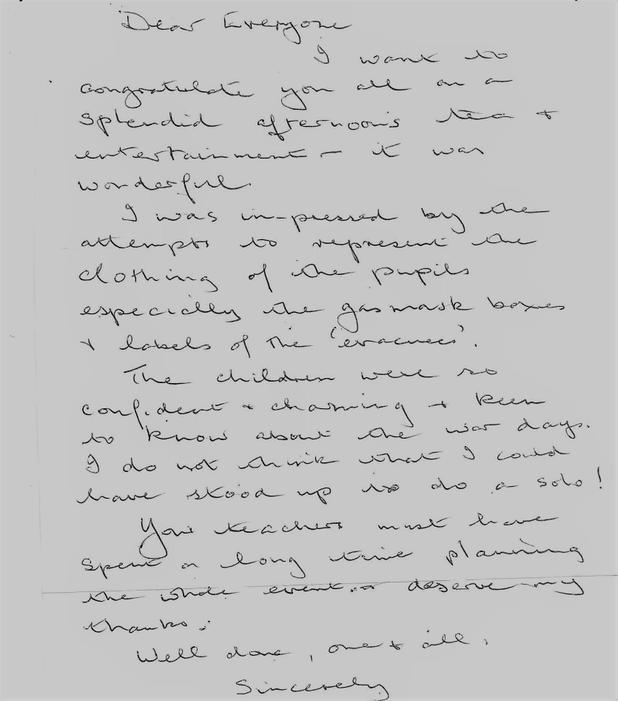 Dear Everyone
I want to
congratulate you all on a
splendid afternoon's tea +
entertainment – it was
wonderful.
I was im-pressed by the
attempts to represent the
clothing of the pupils
especially the gasmask boxes
+ labels of the 'evacuees'.
The children were so
confident + charming + keen
to know about the war days.
I do not think that I could
have stood up to do a solo!
Your teachers must have
spent a long time planning
the whole event + deserve my
thanks.
Well done, one + all.
Sincerely